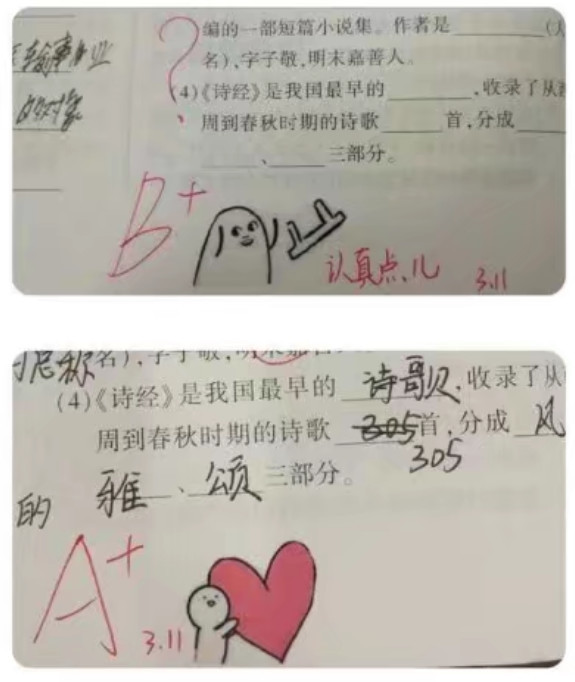 编的一部短篇小说集。作者是______(
名),字子敬,明末嘉善人。
(4)《诗经》是我国最早的______,收录了从
周到春秋时期的诗歌______首,分成______
______、______三部分。
的对象
?
B+
认真点儿
3.11
的总称
名),字子敬,明末嘉
(4)《诗经》是我国最早的 诗歌,收录了从
周到春秋时期的诗歌 305首,分成 风
305
的 雅、颂 三部分。
A+
3.11